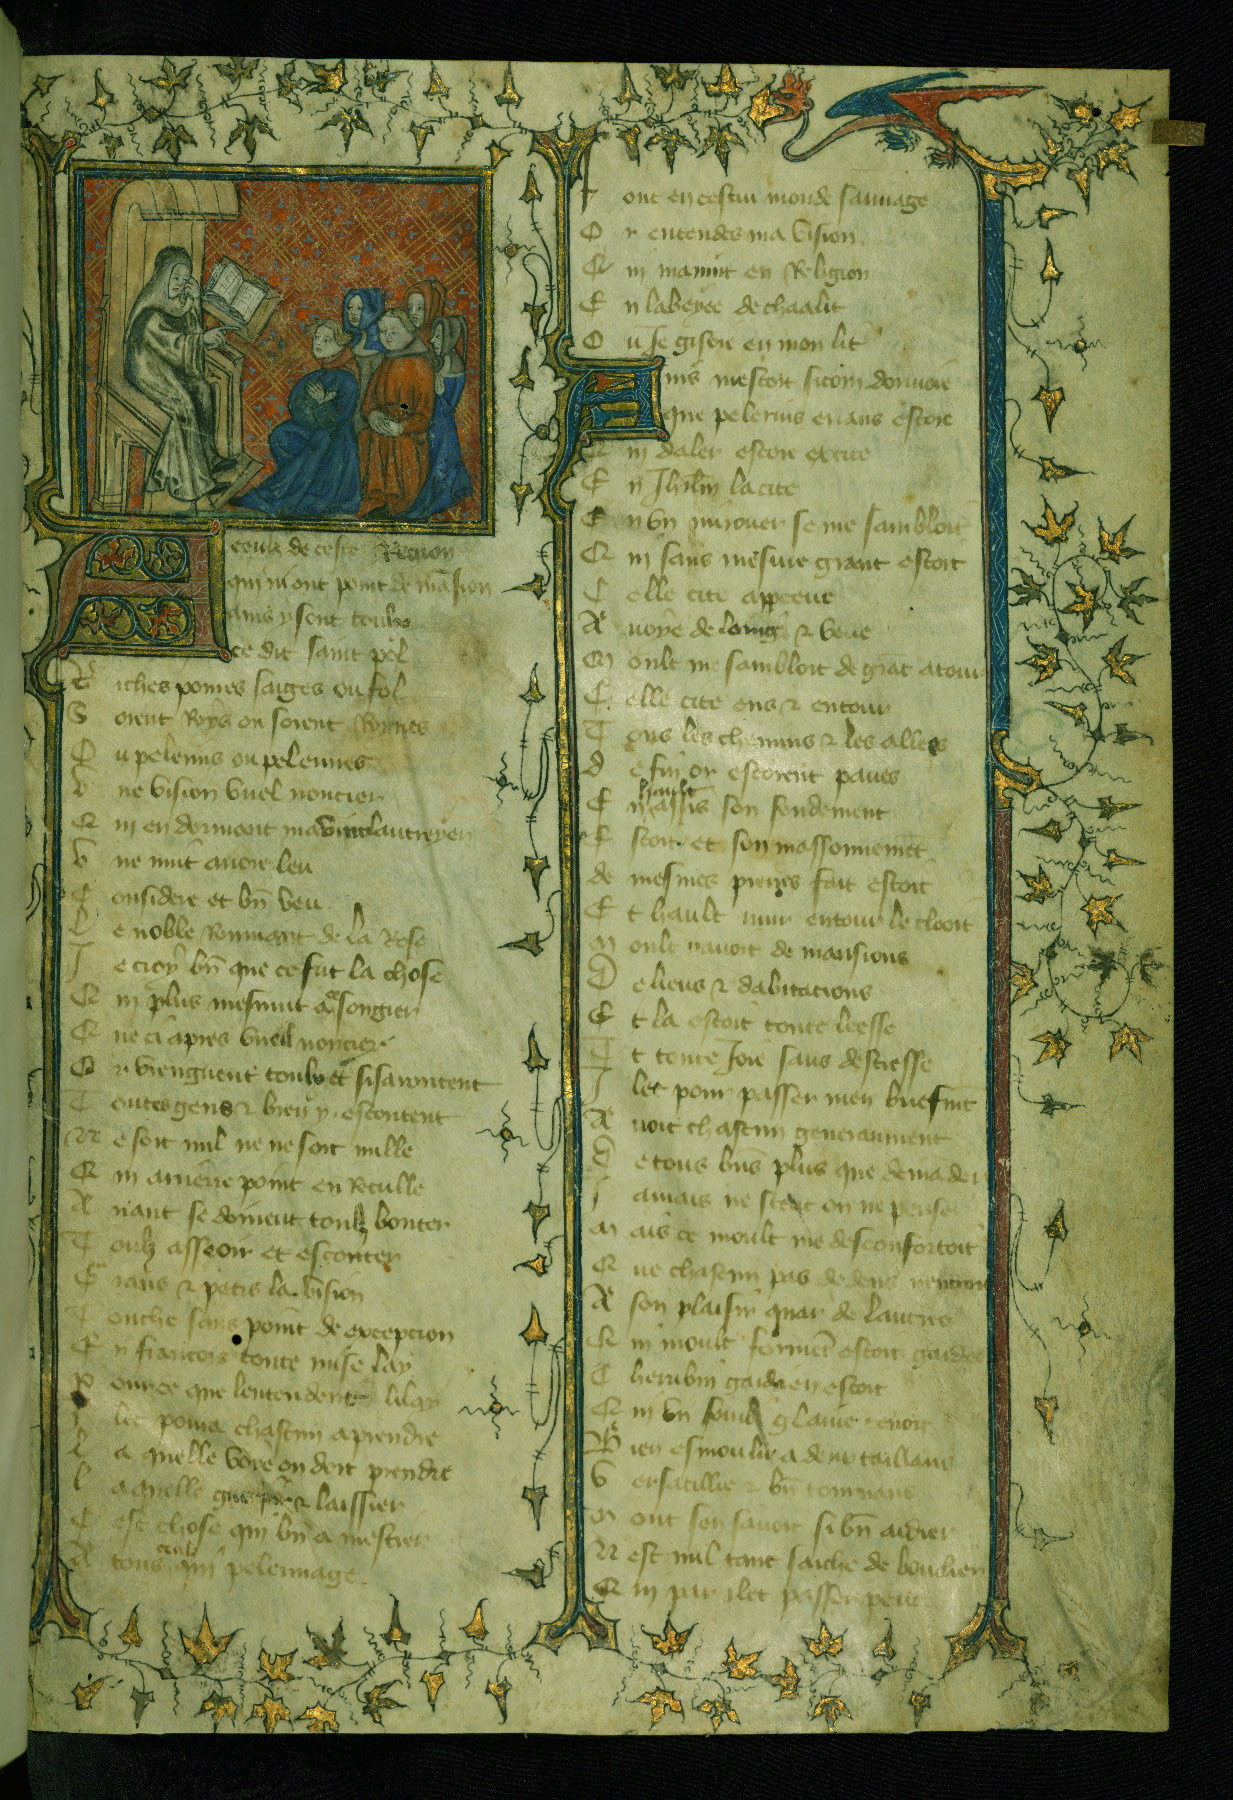 A ceulx de ceste Region
qui ni ont point de mãsion
ains y sont toulz
ce dit saint pol
Riches povres saiges ou fol
Soient Roys ou soient Roynes
Ou pelerins ou pelerines
Vne vision vuel noncier
Qui en dormant mavint lautreyer
Vne nuit avoie leu
Considere et bñ veu
Le noble Rommant de la Rose
Je croy bñ que ce fut la chose
Qui plus mesmut a songier
Que ci apres vueil noncier
Or viengnent toulz et
Toutes gens & bien y escoutent
Ne soit nul ne ne soit nulle
Qui arriere point en reculle
Avant se doivent toulz bouter
Toulz asseoir et escouter
Grans & petis la vision
Touche sans point de excepcion
En francois toute mise lay
Pour ce que lentendent li lay
Illec pourra chascun aprendre
La quelle voye on doit prendre
Laquelle & laissier
Cest chose qui bñ a mestier
A tous ceulz qui pelerinage
Font en cestui monde sauvage
Or entendes ma vision
Qui mavint en Religion
En labeyee de chaalit
Où je gisoie en mon lit
Avis mestoit si com dormoie
que pelerins errans estoie
Qui daler estoie excite
En Jhrlm la cite
En vn mirouer se me sambloit
Qui sans mesure grant estoit
Celle cite apperceue
Avoye de loing & veue
Moult me sambloit de grãt atour
Celle cite ens & entour
Tous les chemins & les allees
de fin or estoient paves
En hault assis son fondement
Estoit et son massonnemẽt
de mesmes pierres fait estoit
Et hault mur entour le clooit
Moult navoit de mansions
De lieus & dabitacions
Et la estoit toute leesse
Et toute Joie sans destresse
Illec pour passer men briefmẽt
Avoit chascun generaument
De tous biẽs plus que demãder
Jamais ne on ne penser
Mais ce moult me desconfortoit
Que chascun pas dedens nentroit
A son plaisir quar de lautree
Qui moult formẽt estoit gardee
Cherubin gardien estoit
Qui vn glaive tenoit
Bien esmoulu a deux taillans
Versatillie & bñ tournans
Mont son savoir si bñ aidier
Nest nul tant saiche de bouclier
Qui par ilec passer peut